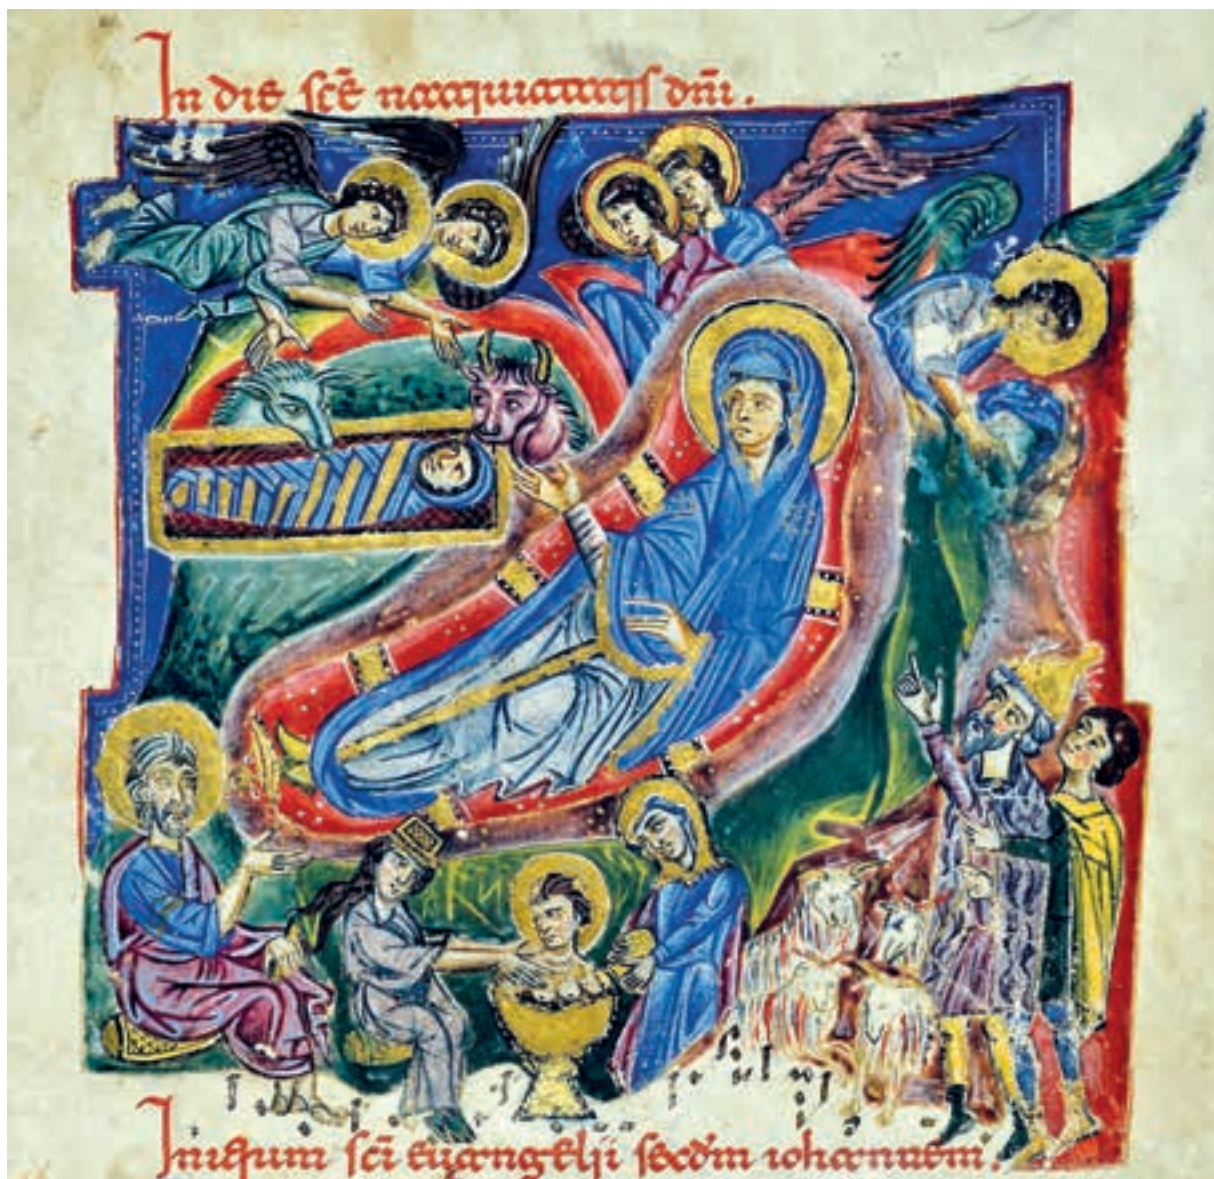 In die scē natiuitatis dñi.
Initium scī euangelii secdm iohannem.